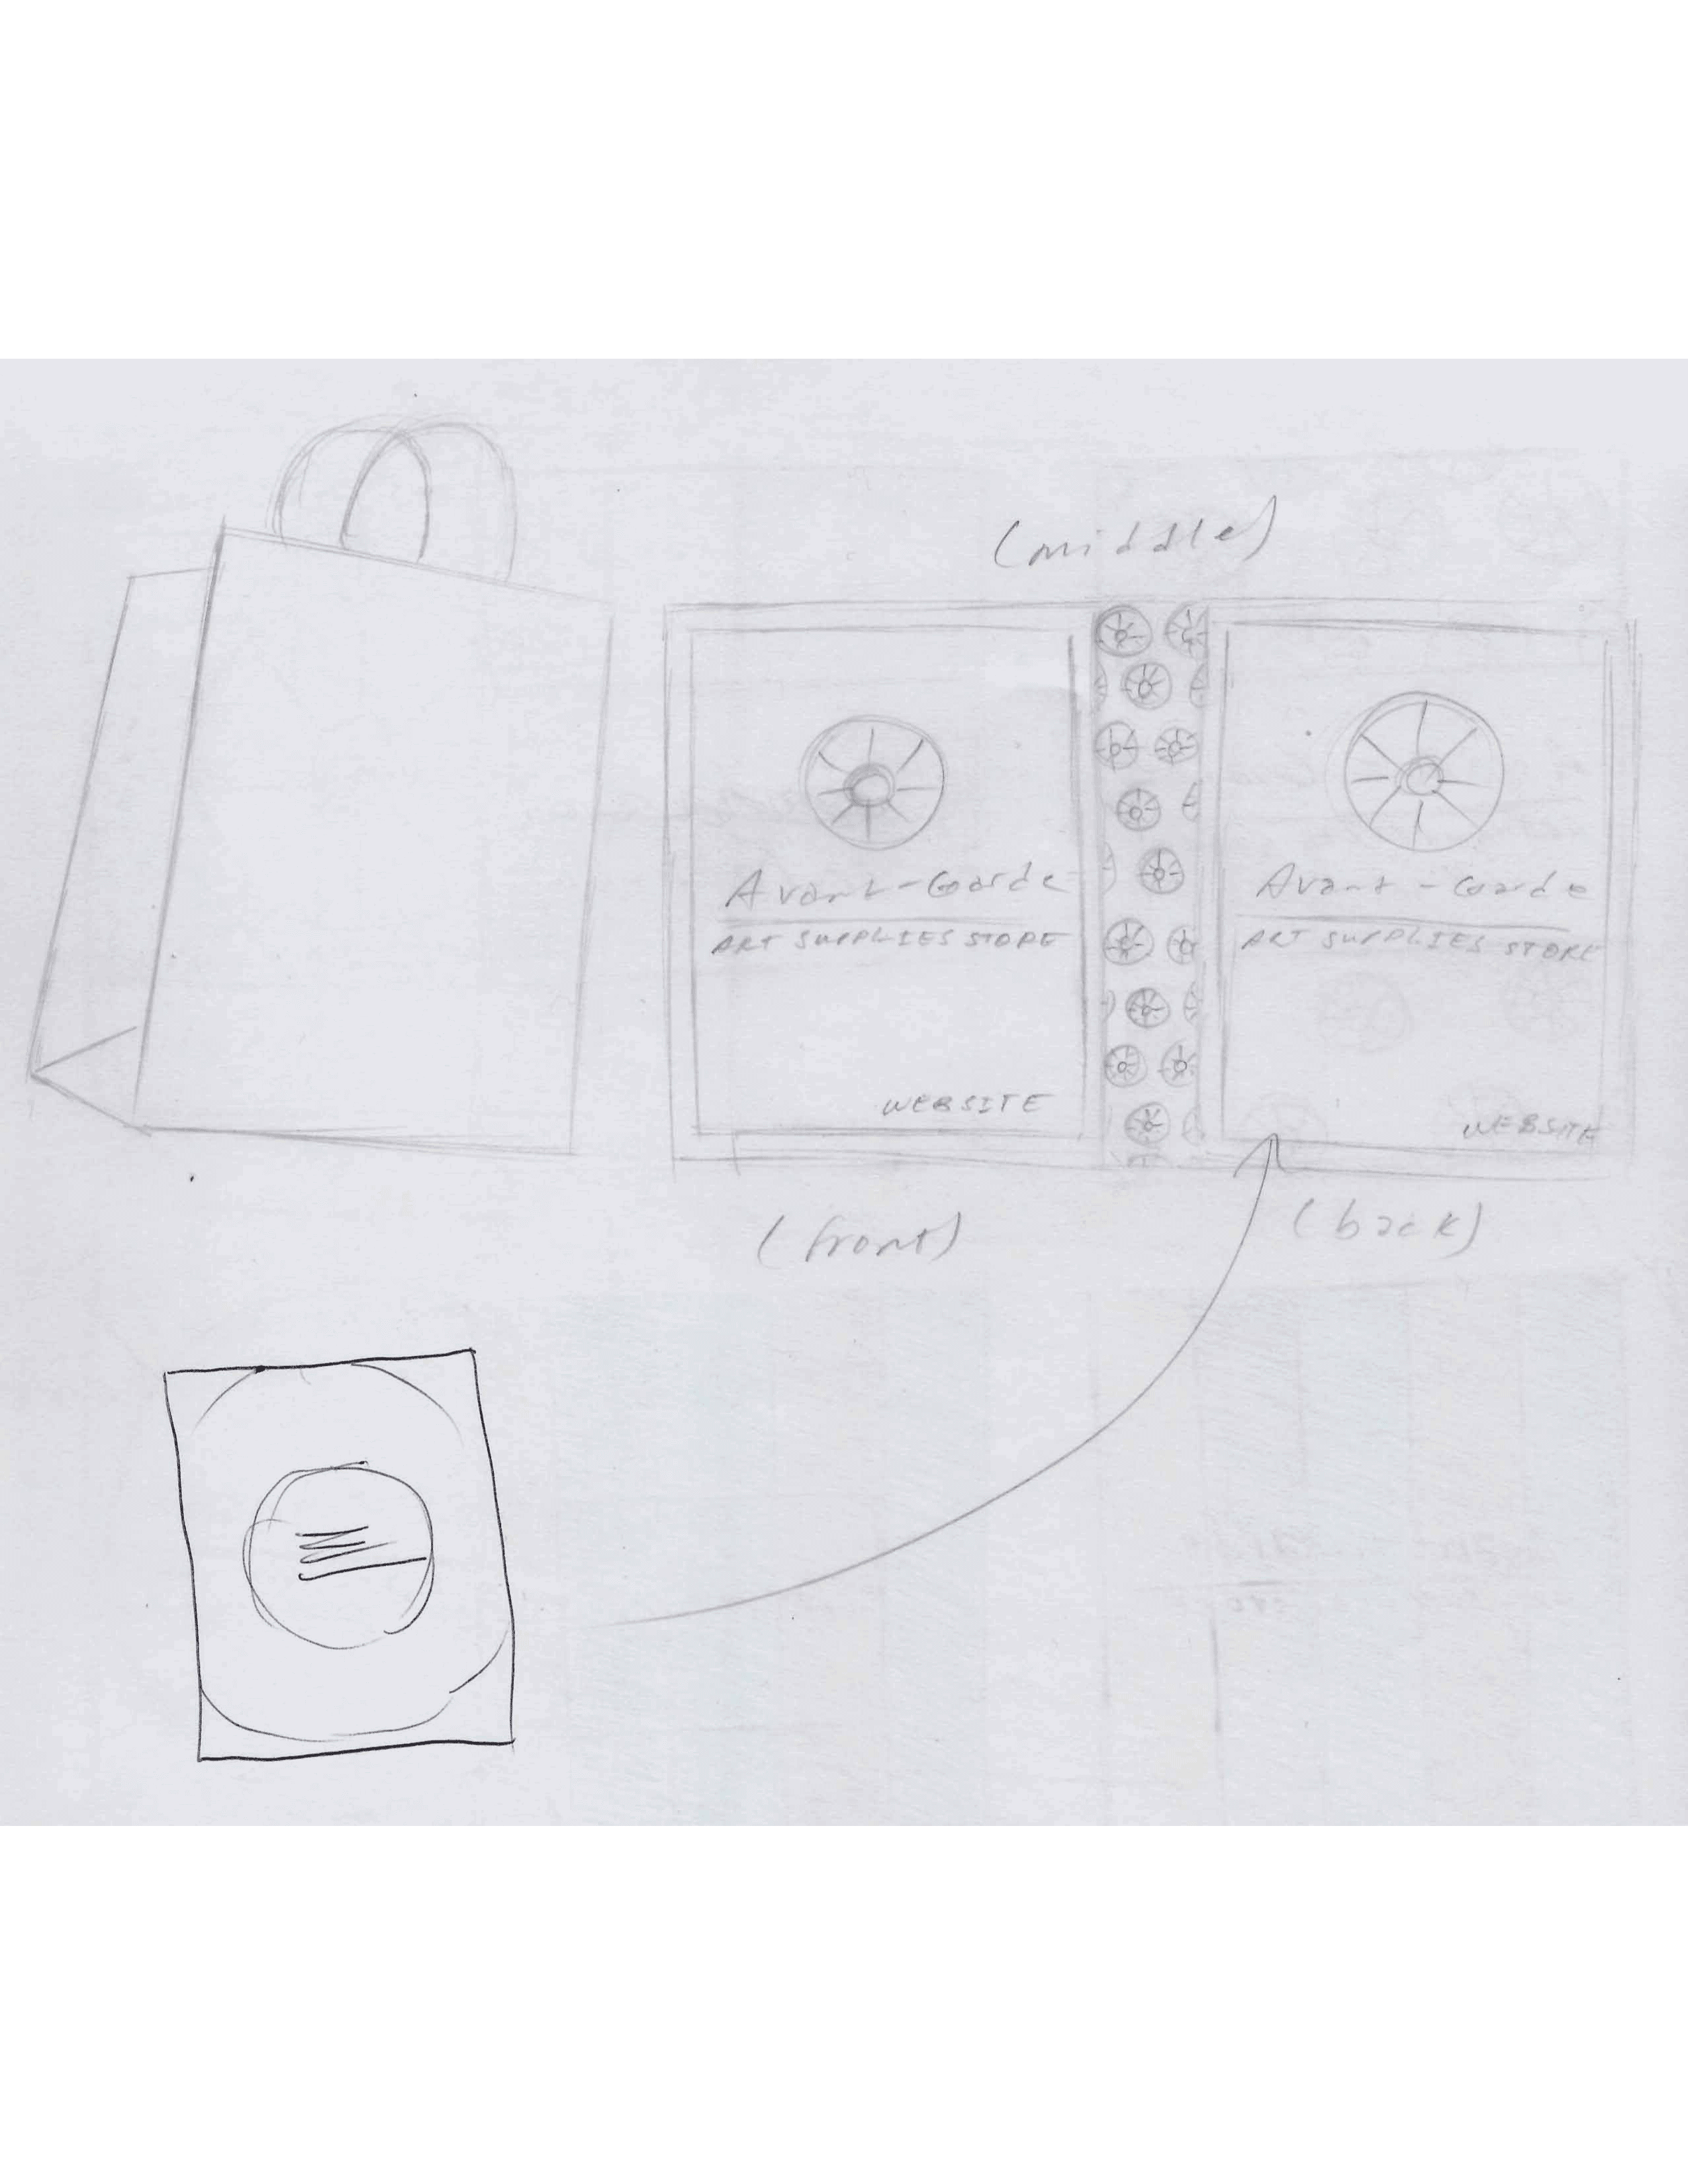 (middle)
Avant-Garde
ART SUPPLIES STORE
WEBSITE
(front)
Avant-Garde
ART SUPPLIES STORE
WEBSITE
(back)